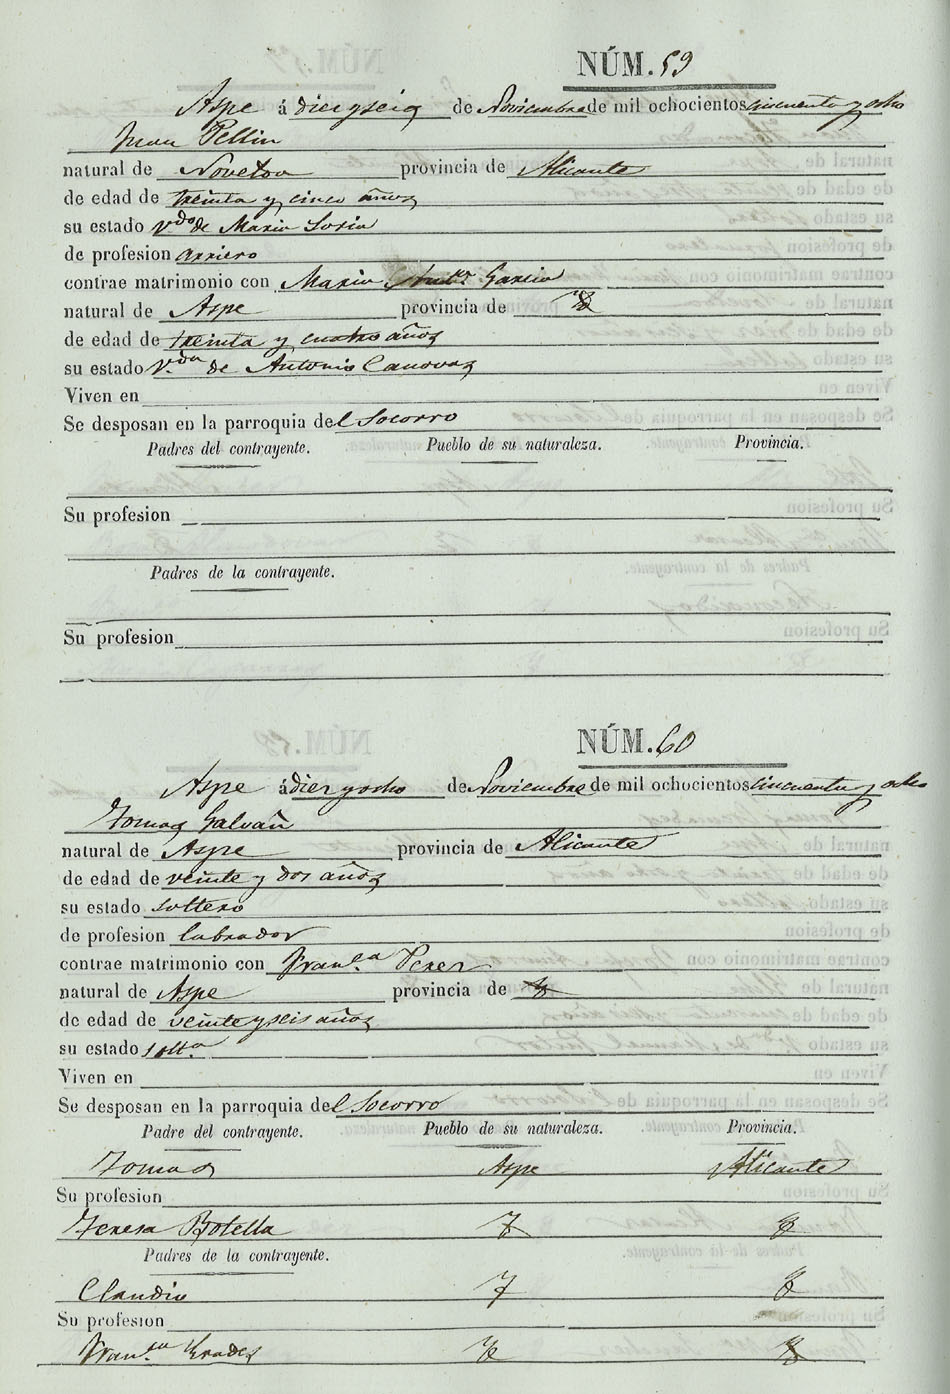 NÚM. 59
Aspe á diez y seis de Noviembre de mil ochocientos cincuenta y ocho
Juan Pellin
natural de Novelda provincia de Alicante
de edad de treinta y cinco años
su estado V.do de Maria Soria
de profesion arriero
contrae matrimonio con Maria Garcia
natural de Aspe provincia de
de edad de treinta y cuatro años
su estado V.da de Antonio Canovas
Viven en
Se desposan en la parroquia del Socorro
Padres del contrayente. Pueblo de su naturaleza. Provincia.
Su profesion
Padres de la contrayente.
Su profesion
NÚM. 60
Aspe á diez y ocho de Noviembre de mil ochocientos cincuenta y ocho
Tomas Galvañ
natural de Aspe provincia de Alicante
de edad de veinte y dos años
su estado soltero
de profesion labrador
contrae matrimonio con Fran.ca Perez
natural de Aspe provincia de
de edad de veinte y seis años
su estado solt.a
Viven en
Se desposan en la parroquia del Socorro
Padre del contrayente. Pueblo de su naturaleza. Provincia.
Tomas Aspe Alicante
Su profesion
Teresa Botella
Padres de la contrayente.
Claudio
Su profesion
Fran.ca